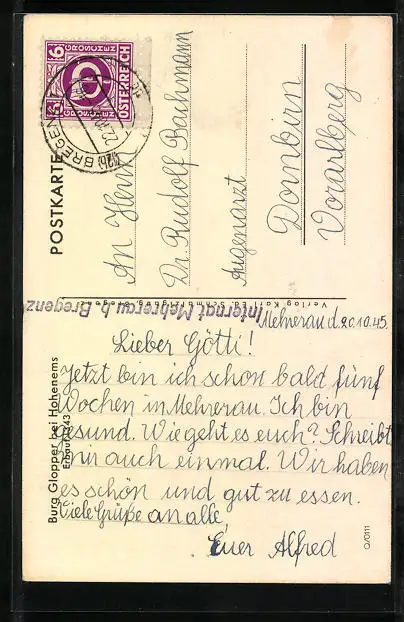 6 GROSCHEN 6
ÖSTERREICH
BREGENZ
POSTKARTE
An Herrn
Dr Rudolf Bachmann
Augenarzt
Dornbirn
Vorarlberg
Internat Mehrerau b. Bregenz
Burg Glopper bei Hohenems
Erbaut 1343
Mehrerau d. 20.10.45.
Lieber Götti!
Jetzt bin ich schon bald fünf
Wochen in Mehrerau. Ich bin
gesund. Wie geht es euch? Schreibt
mir auch einmal. Wir haben
es schön und gut zu essen.
Viele Grüße an alle,
Euer Alfred